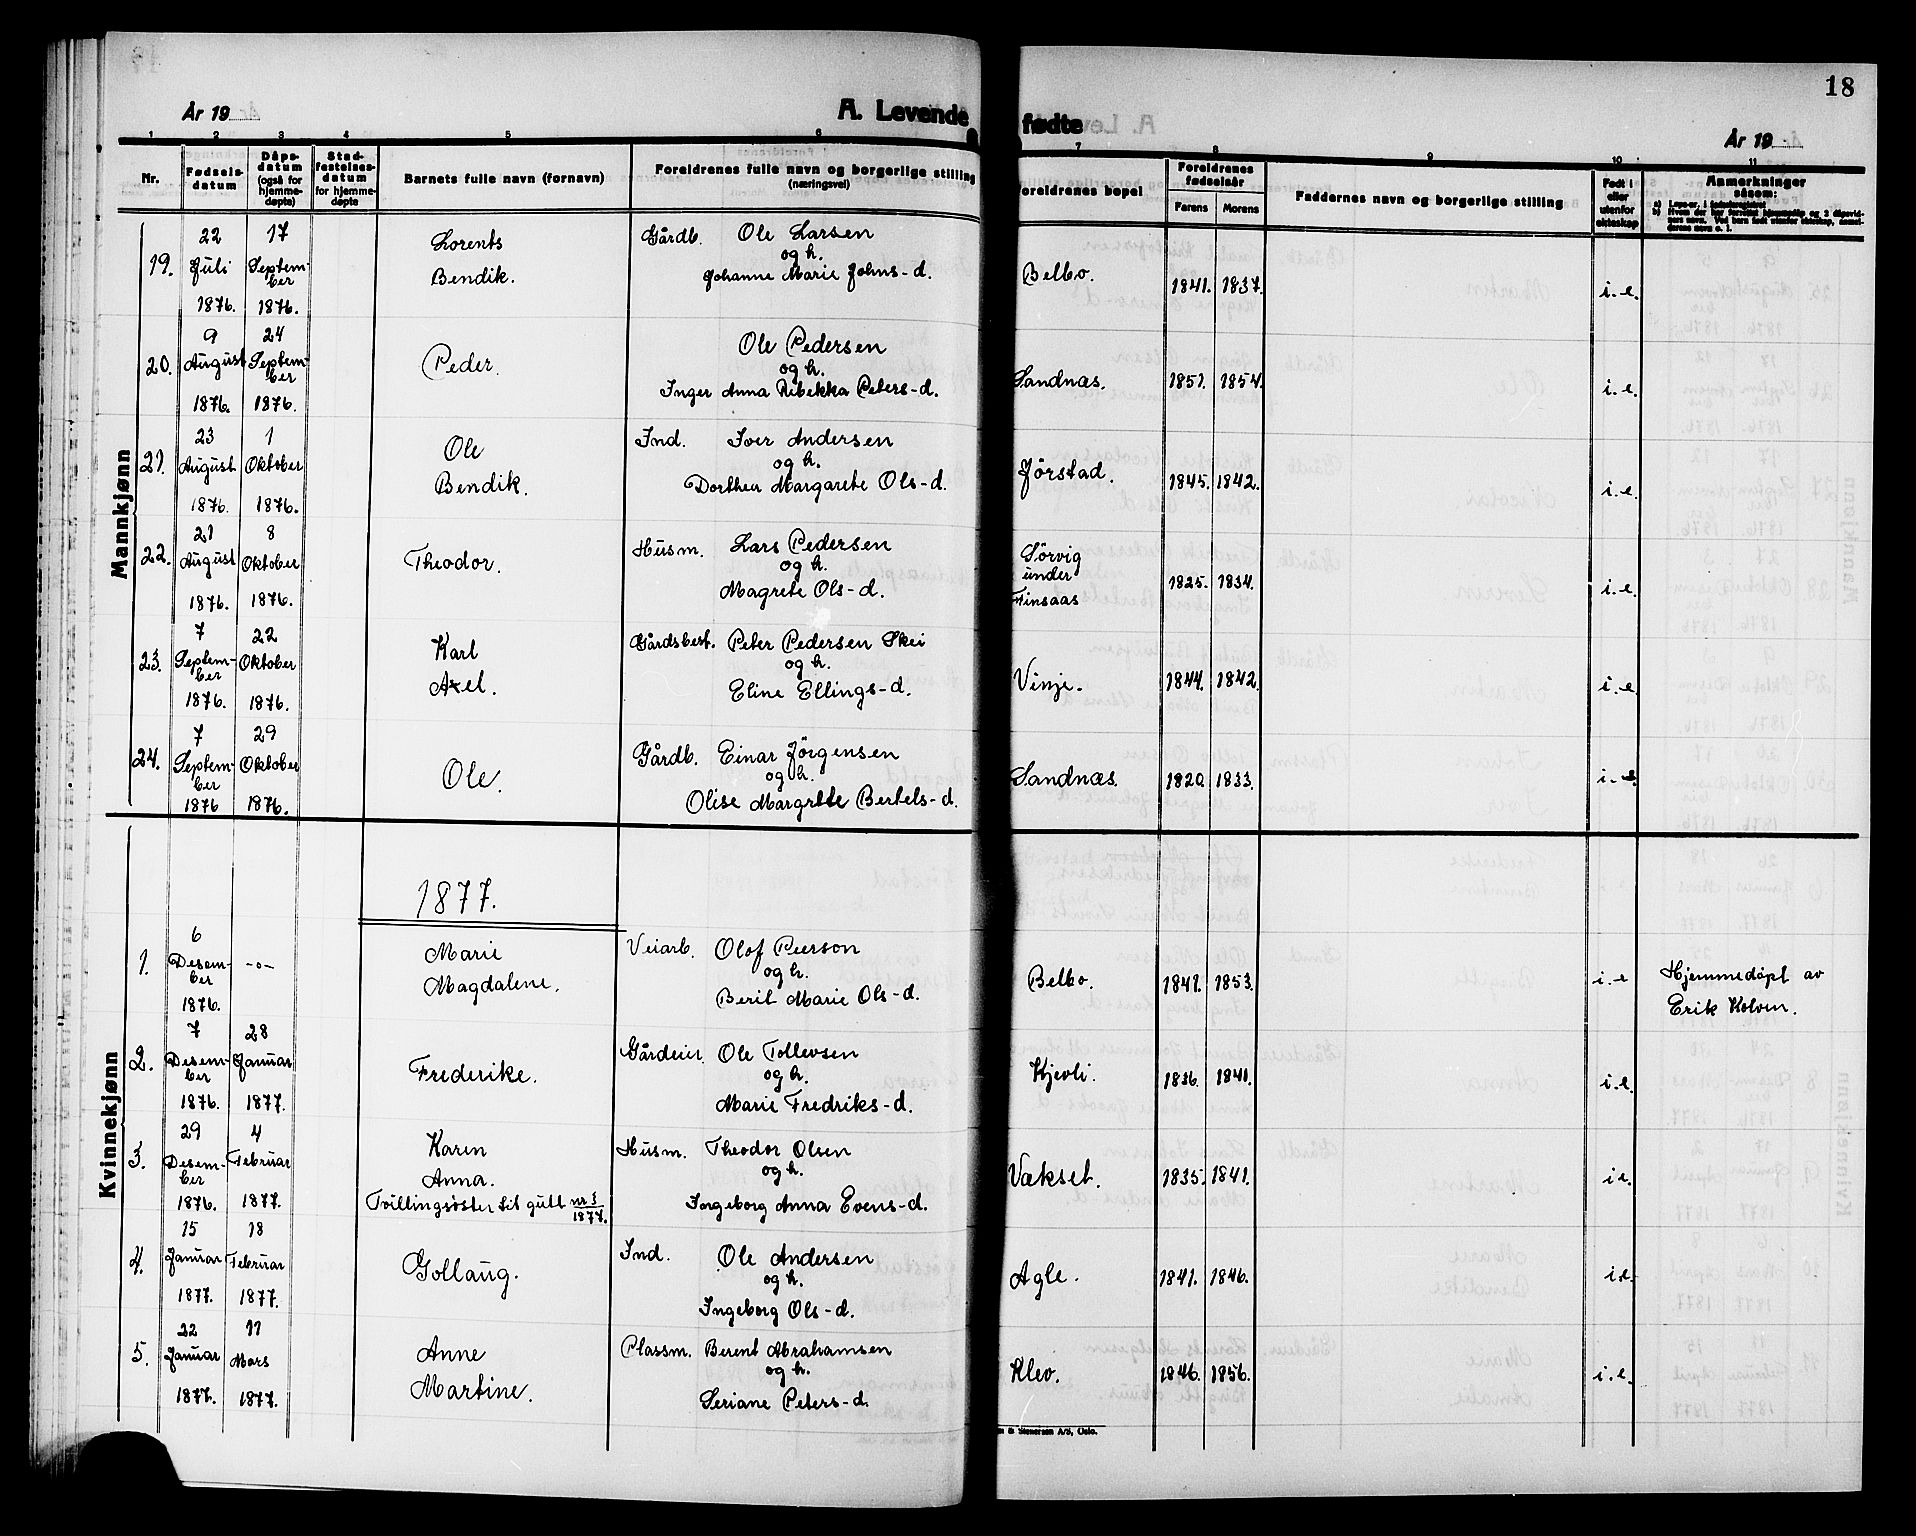 18
År 19
A. Levende fødte
År 19
1 2 3 4 5 6 7 8 9 10 11
Nr.
Fødselsdatum
Dåpsdatum (også for hjemmedøpte)
Stadfestelsesdatum for hjemmedøpte
Barnets fulle navn (fornavn)
Foreldrenes fulle navn og borgerlige stilling (næringsvei)
Foreldrenes bopel
Foreldrenes fødselsår
Farens
Morens
Faddernes navn og borgerlige stilling
Født i eller utenfor ekteskap
Anmerkninger såsom:
Mannkjønn
19.
22 Juli 1876.
17 September 1876.
Lorents
Bendik.
Gårdb. Ole Larsen
og h.
Johanne Marie Johns-d.
Belbo.
1841. 1837.
i. e.
20.
9 August 1876.
24 September 1876.
Peder.
Ole Pedersen
og h.
Inger Anna Rebekka Peters-d.
Sandnæs.
1851. 1854.
i. e.
21.
23 August 1876.
1 Oktober 1876.
Ole
Bendik.
Ind. Iver Andersen
og h.
Dorthea Margarete Ols-d.
Jørstad.
1845. 1842.
i. e.
22.
21 August 1876.
8 Oktober 1876.
Theodor.
Husm. Lars Pedersen
og h.
Magrete Ols-d.
Sörvig
under
Finsaas
1825. 1834.
i. e.
23.
7 September 1876.
22 Oktober 1876.
Karl
Axel.
Gårdsbest. Peter Pedersen Skei
og h.
Eline Ellings-d.
Vinje.
1844. 1842.
i. e.
24.
7 September 1876
29 Oktober 1876.
Ole.
Gårdb. Einar Jörgensen
og h.
Olise Margrete Bertels-d.
Sandnæs.
1820. 1833.
i. e.
1877.
Kvinnekjønn
1.
6 Desember 1876.
-o-
Marie
Magdalene.
Veiarb. Olof Peerson
og h.
Berit Marie Ols-d.
Belbo.
1841. 1853.
i. e
Hjemmedöpt av
Erik Kolven.
2.
7 Desember 1876.
28 Januar 1877.
Frederike.
Gårdeier. Ole Tollevsen
og h.
Marie Fredriks-d.
Kjevli.
1836. 1840.
i. e.
3.
29 Desember 1876.
4 Februar 1877.
Karen
Anna.
Tvillingsöster til gutt nr 3/1877.
Husm. Theodor Olsen
og h.
Ingeborg Anna Evens-d.
Vækset.
1835. 1841.
i e.
4.
15 Januar 1877.
18 Februar 1877.
Gollaug.
Ind. Ole Andersen
og h.
Ingeborg Ols-d.
Agle.
1841. 1846.
i e.
5.
22 Januar 1877.
11 Mars 1877.
Anne
Martine.
Plassm. Berent Abrahamsen
og h.
Seriane Peters-d.
Klev.
1846. 1856.
i. e.
& Stenersen A/S, Oslo.